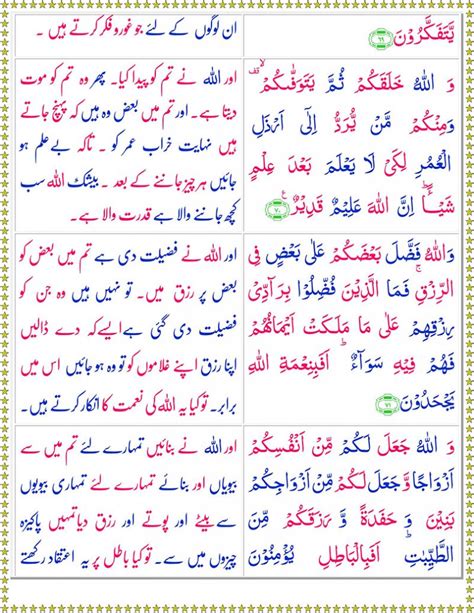 یَّتَفَکَّرُوۡنَ ﴿۶۹﴾
ان لوگوں کے لئے جو غورو فکر کرتے ہیں ۔
وَ اللّٰہُ خَلَقَکُمۡ ثُمَّ یَتَوَفّٰىکُمۡ ۟ۙ
وَمِنۡکُمۡ مَّنۡ یُّرَدُّ اِلٰۤی اَرۡذَلِ
الۡعُمُرِ لِکَیۡ لَا یَعۡلَمَ بَعۡدَ عِلۡمٍ
شَیۡـًٔا ؕ اِنَّ اللّٰہَ عَلِیۡمٌ قَدِیۡرٌ ﴿۷۰﴾
اور اللہ نے تم کو پیدا کیا۔ پھر وہ تم کو موت
دیتا ہے۔ اور تم میں بعض وہ ہیں کہ پہنچ جاتے
ہیں نہایت خراب عمر کو ۔ تاکہ بےعلم ہو
جائیں ہر چیز جاننے کے بعد ۔ بیشک اللہ سب
کچھ جاننے والا ہے قدرت والا ہے۔
وَاللّٰہُ فَضَّلَ بَعۡضَکُمۡ عَلٰی بَعۡضٍ فِی
الرِّزۡقِ ۚ فَمَا الَّذِیۡنَ فُضِّلُوۡا بِرَآدِّیۡ
رِزۡقِہِمۡ عَلٰی مَا مَلَکَتۡ اَیۡمَانُہُمۡ
فَہُمۡ فِیۡہِ سَوَآءٌ ؕ اَفَبِنِعۡمَۃِ اللّٰہِ
یَجۡحَدُوۡنَ ﴿۷۱﴾
اور اللہ نے فضیلت دی ہے تم میں بعض کو
بعض پر رزق میں۔ تو نہیں ہیں وہ جن کو
فضیلت دی گئی ہے ایسے کہ دے ڈالیں
اپنا رزق اپنے غلاموں کو تو وہ ہو جائیں اس میں
برابر۔ تو کیا یہ اللہ کی نعمت کا انکار کرتے ہیں۔
وَ اللّٰہُ جَعَلَ لَکُمۡ مِّنۡ اَنۡفُسِکُمۡ
اَزۡوَاجًا وَّ جَعَلَ لَکُمۡ مِّنۡ اَزۡوَاجِکُمۡ
بَنِیۡنَ وَ حَفَدَۃً وَّ رَزَقَکُمۡ مِّنَ
الطَّیِّبٰتِ ؕ اَفَبِالۡبَاطِلِ یُؤۡمِنُوۡنَ
اور اللہ نے بنائیں تمہارے لئے تم میں سے
بیویاں اور بنائے تمہارے لئے تمہاری بیویوں
سے بیٹے اور پوتے اور رزق دیا تمہیں پاکیزہ
چیزوں میں سے۔ تو کیا باطل پر یہ اعتقاد رکھتے